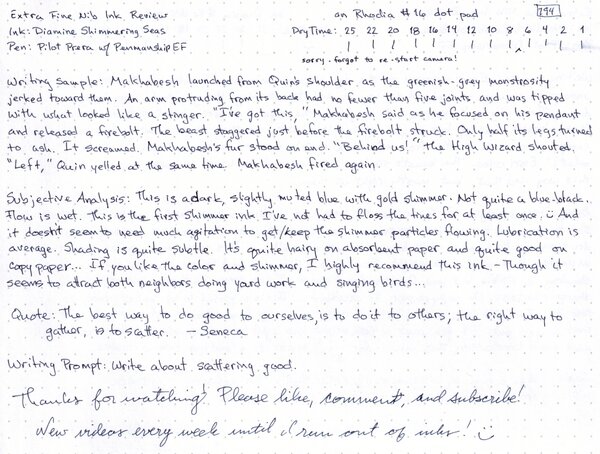 Extra Fine Nib Ink Review on Rhodia #16 dot pad 794
Ink: Diamine Shimmering Seas Dry Time: 25 22 20 18 16 14 12 10 8 6 4 2 1
Pen: Pilot Prera w/ Penmanship EF
sorry. forgot to re-start camera!
Writing Sample: Makhabesh launched from Quin's shoulder as the greenish-grey monstrosity
jerked toward them. An arm protruding from its back had no fewer than five joints and was tipped
with what looked like a stinger. "I've got this," Makhabesh said as he focused on his pendant
and released a firebolt. The beast staggered just before the firebolt struck. Only half its legs turned
to ash. It screamed. Makhabesh's fur stood on end. "Behind us!" the High Wizard shouted.
"Left," Quin yelled at the same time. Makhabesh fired again.
Subjective Analysis: This is a dark, slightly muted blue with gold shimmer. Not quite a blue-black.
Flow is wet. This is the first shimmer ink I've not had to floss the tines for at least once. :) And
it doesn't seem to need much agitation to get/keep the shimmer particles flowing. Lubrication is
average. Shading is quite subtle. It's quite hairy on absorbent paper and quite good on
copy paper... If you like the color and shimmer, I highly recommend this ink - Though it
seems to attract both neighbors doing yard work and singing birds...
Quote: The best way to do good to ourselves, is to do it to others; the right way to
gather, is to scatter. - Seneca
Writing Prompt: Write about scattering good.
Thanks for watching! Please like, comment, and subscribe!
New videos every week until I run out of inks! :)